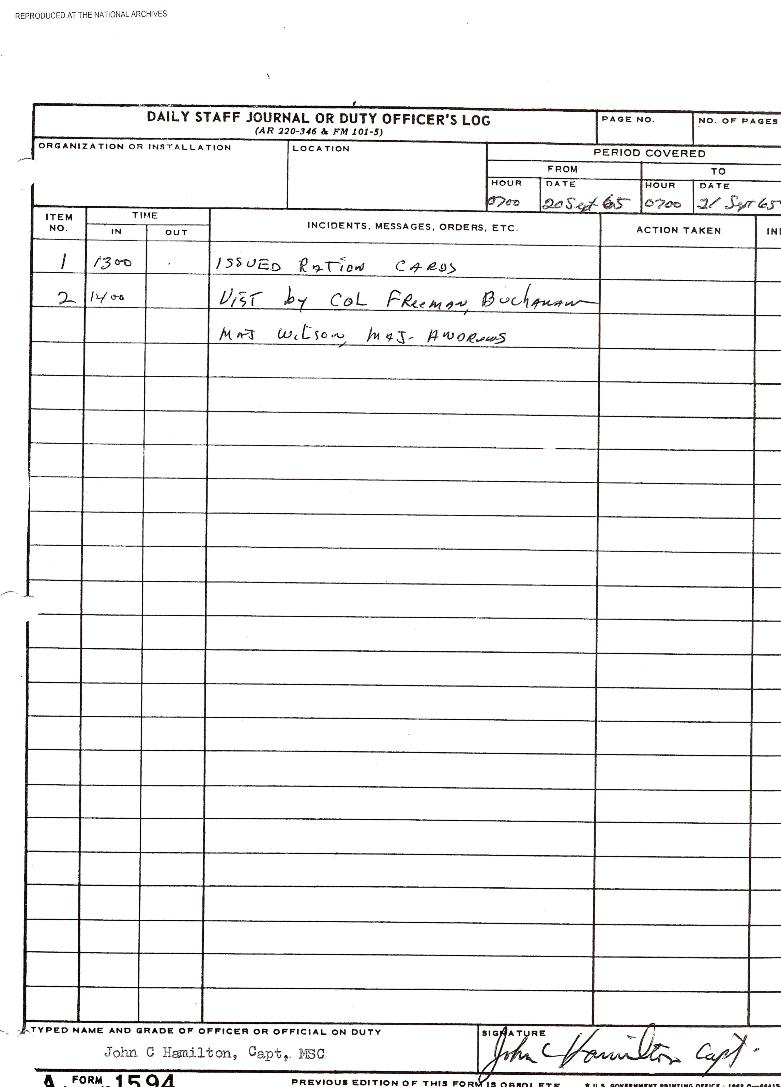 REPRODUCED AT THE NATIONAL ARCHIVES
DAILY STAFF JOURNAL OR DUTY OFFICER'S LOG
(AR 220-346 & FM 101-5)
PAGE NO.
NO. OF PAGES
ORGANIZATION OR INSTALLATION
LOCATION
PERIOD COVERED
FROM
TO
HOUR
DATE
HOUR
DATE
0700
20 Sept 65
0700
21 Sept 65
ITEM NO.
TIME
IN
OUT
INCIDENTS, MESSAGES, ORDERS, ETC.
ACTION TAKEN
1 1300 ISSUED Ration CARDS
2 1400 Vist by COL Freeman, Buchanan
MAJ Wilson, MAJ. ANDREWS
TYPED NAME AND GRADE OF OFFICER OR OFFICIAL ON DUTY
SIGNATURE
John C Hamilton, Capt, MSC
John C Hamilton Capt.
FORM 1594
PREVIOUS EDITION OF THIS FORM IS OBSOLETE